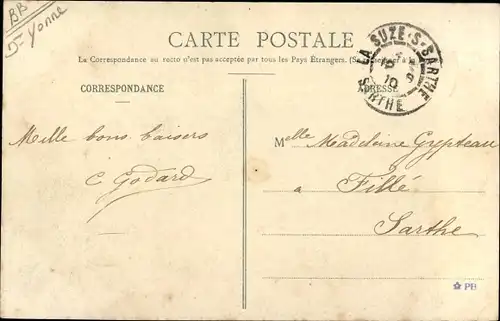 BB
Dt Yonne
CARTE POSTALE
La Correspondance au recto n'est pas acceptée par tous les Pays Étrangers. (Se renseigner à la
LA SUZE-S-SARTHE
SARTHE
CORRESPONDANCE
ADRESSE
Mille bons baisers
C Godard
Mlle Madeleine
a Fillé
Sarthe
PB